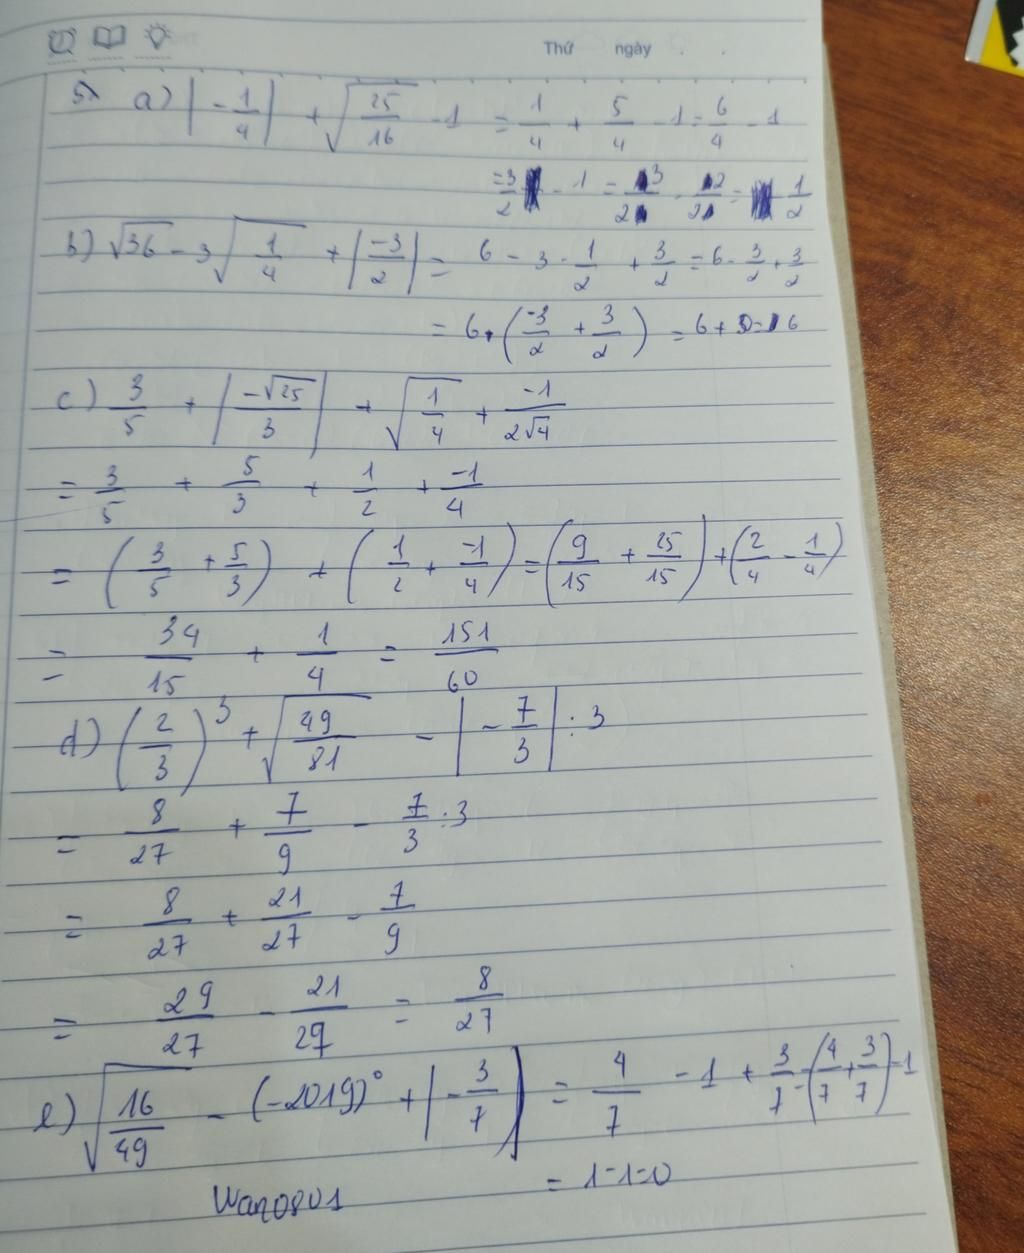 Thứ ngày
5) a) |-1/4| + √(25/16) - 1 = 1/4 + 5/4 - 1 = 6/4 - 1
= 3/2 - 1 = 3/2 - 2/2 = 1/2
b) √36 - 3√(1/4) + |-3/2| = 6 - 3 · 1/2 + 3/2 = 6 - 3/2 + 3/2
= 6 + (-3/2 + 3/2) = 6 + 0 = 6
c) 3/5 + |-√25/3| + √(1/4) + -1/(2√4)
= 3/5 + 5/3 + 1/2 + -1/4
= (3/5 + 5/3) + (1/2 + -1/4) = (9/15 + 25/15) + (2/4 - 1/4)
= 34/15 + 1/4 = 151/60
d) (2/3)³ + √(49/81) - |-7/3| : 3
= 8/27 + 7/9 - 7/3 : 3
= 8/27 + 21/27 - 7/9
= 29/27 - 21/27 = 8/27
e) √(16/49) - (-2019)⁰ + |-3/7| = 4/7 - 1 + 3/7 = (4/7 + 3/7) - 1
= 1 - 1 = 0
Wano801